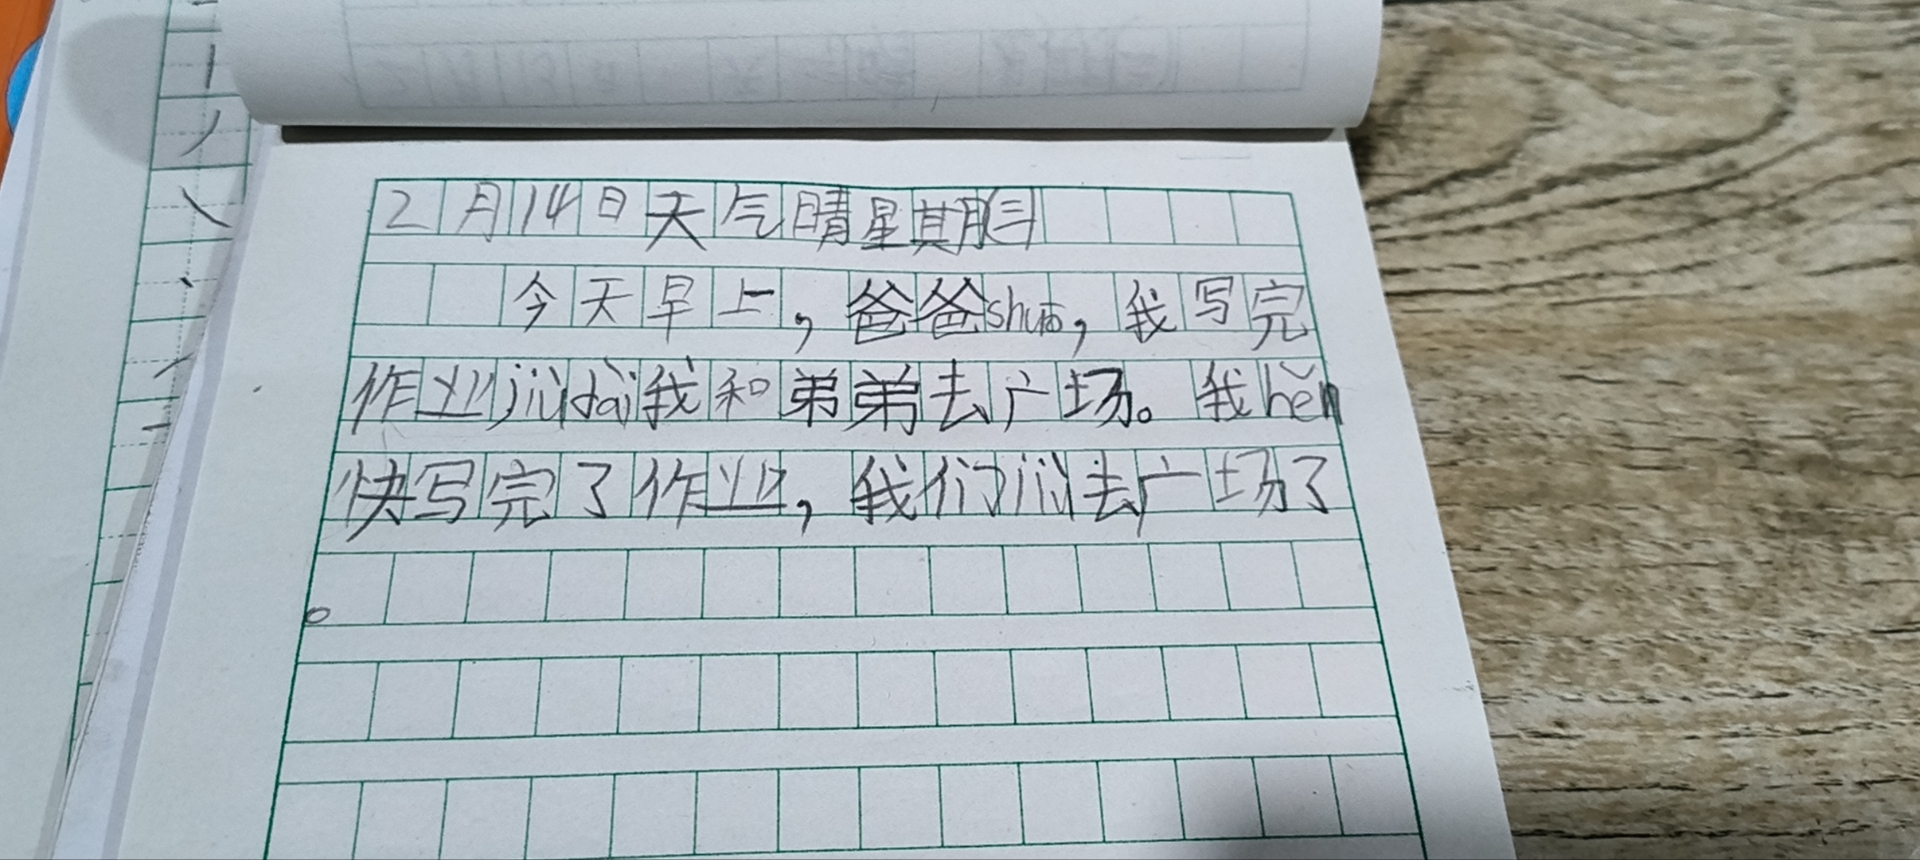 2月14日天气晴星期三
今天早上，爸爸shuō，我写完
作业jiùdài我和弟弟去广场。我hěn
快写完了作业，我们jiù去广场了
。